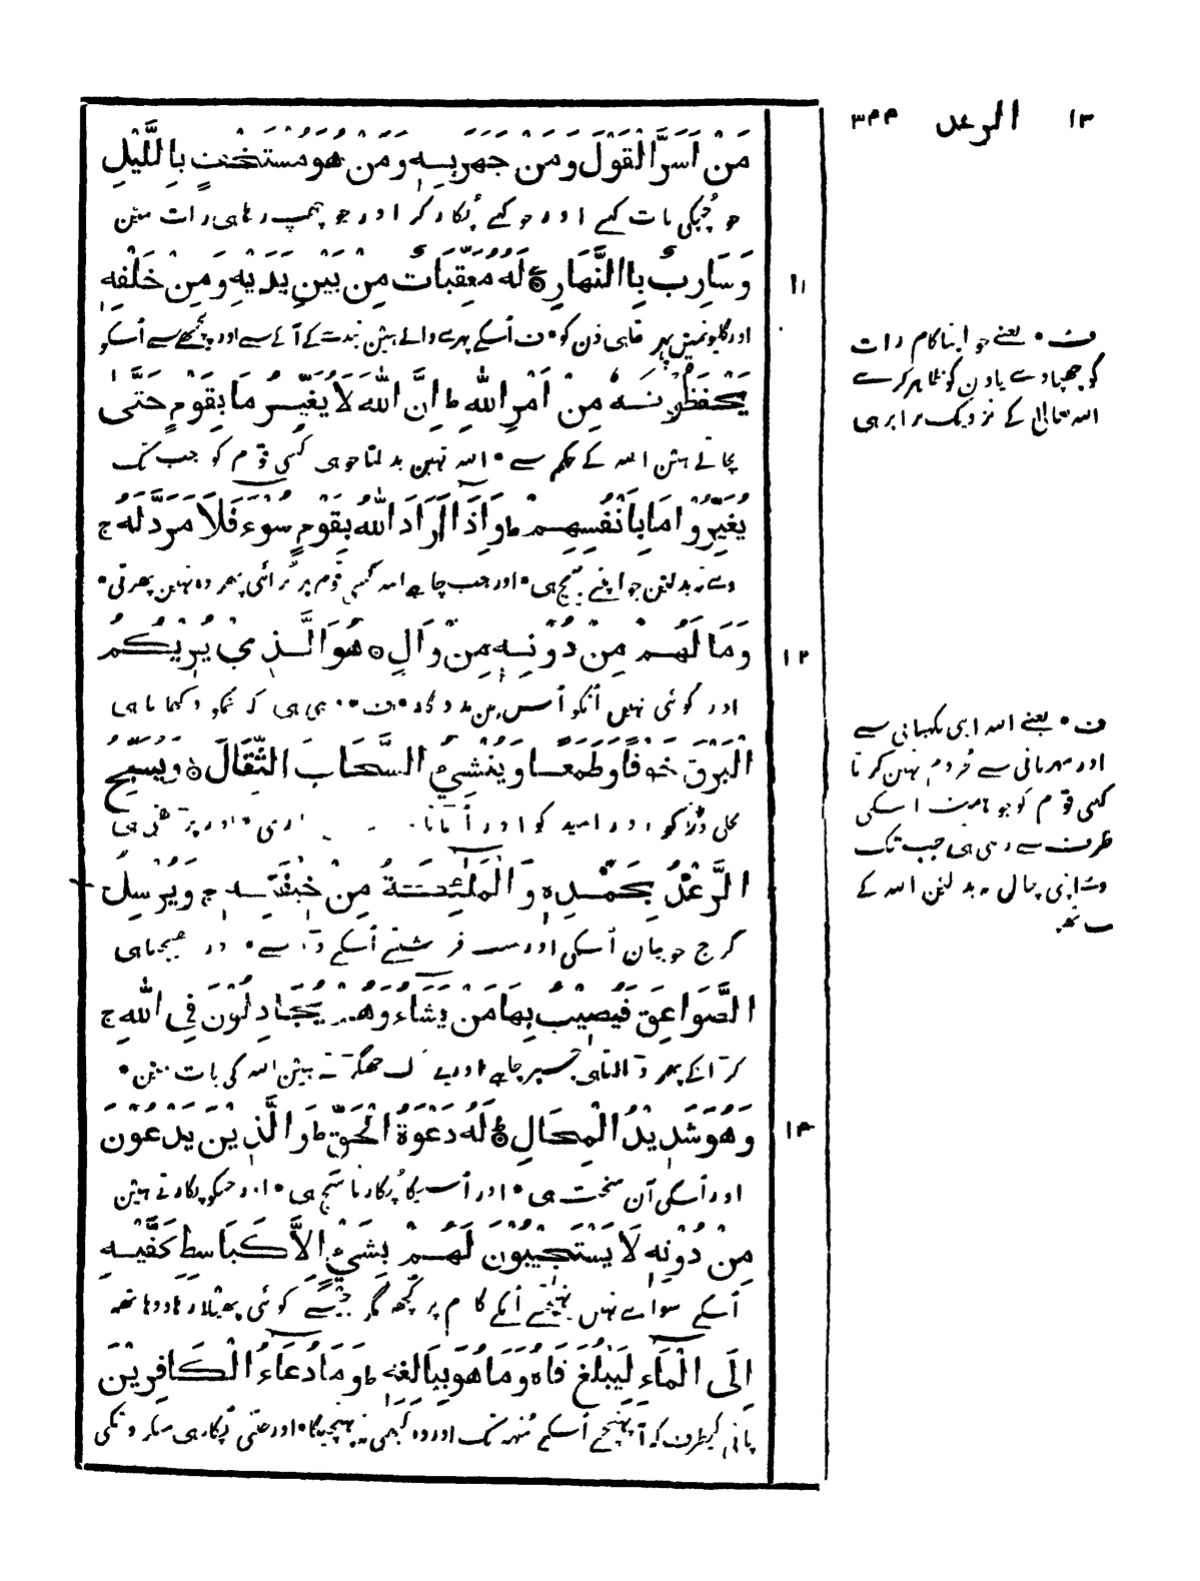 ١٣ الرعد ٣٤٤
مَنْ اَسَرَّ الْقَوْلَ وَمَنْ جَهَرَ بِهٖ وَمَنْ هُوَ مُسْتَخْفٍ بِاللَّيْلِ
جو چُھپکی بات کہے اور جو کہے پُکار کر اور جو چھپ رہا ہی رات مین
وَسَارِبٌ بِاالنَّهَارِ ○ لَهٗ مُعَقِّبَاتٌ مِنْ بَيْنِ يَدَيْهِ وَمِنْ خَلْفِهٖ ١١
اور گلیونمین پھر تا ہی دن کو • ف اُسکے پہرے والے ہین بندے کے آگے سے اور پیچھے سے اُسکو
يَحْفَظُوْنَهٗ مِنْ اَمْرِ اللّٰهِ ط اِنَّ اللّٰهَ لَا يُغَيِّرُ مَا بِقَوْمٍ حَتّٰى
بچاتے ہین اللہ کے حکم سے • اللہ نہین بدلتا جو ہی کسی قوم کو جب تک
يُغَيِّرُوْا مَا بِاَنْفُسِهِمْ ط وَاِذَآ اَرَادَ اللّٰهُ بِقَوْمٍ سُوْءً فَلَا مَرَدَّ لَهٗ ج
وے نہ بدلین جو اپنے بیچ ہی • اور جب چاہے اللہ کسی قوم پر بُرائی پھر وہ نہین پھرتی •
وَمَا لَهُمْ مِنْ دُوْنِهٖ مِنْ وَّالٍ ○ هُوَ الَّذِيْ يُرِيْكُمُ ١٢
اور کوئی نہیں اُنکو اُس بن مددگار • ف • وہی ہی کہ تمکو دکھاتا ہی
الْبَرْقَ خَوْفًا وَطَمَعًا وَيُنْشِئُ السَّحَابَ الثِّقَالَ ○ وَيُسَبِّحُ
بجلی ڈر کو اور امید کو اور اُٹھاتا بھاری • اور پڑھتی ہی
الرَّعْدُ بِحَمْدِهٖ وَالْمَلٰٓئِكَةُ مِنْ خِيْفَتِهٖ ج وَيُرْسِلُ
گرج خوبیان اُسکی اور سب فرشتے اُسکے ڈر سے • اور بھیجتا ہی
الصَّوَاعِقَ فَيُصِيْبُ بِهَا مَنْ يَشَآءُ وَهُمْ يُجَادِلُوْنَ فِي اللّٰهِ ج
کڑاکے پھر ڈالتا ہی جسپر چاہے اور یے لوگ جھگڑتے ہین اللہ کی بات مین •
وَهُوَ شَدِيْدُ الْمِحَالِ ○ لَهٗ دَعْوَةُ الْحَقِّ ط وَالَّذِيْنَ يَدْعُوْنَ ١٣
اور اُسکی آن سخت ہی • اور اُسیکا پُکارنا سچ ہی • اور جنکو پکارتے ہین
مِنْ دُوْنِهٖ لَا يَسْتَجِيْبُوْنَ لَهُمْ بِشَيْءٍ اِلَّا كَبَاسِطِ كَفَّيْهِ
اُسکے سواے نہیں پہنچتے اُنکے کام پر کُچھ مگر جیسے کوئی پھیلا رہا دو ہاتھ
اِلَى الْمَآءِ لِيَبْلُغَ فَاهُ وَمَا هُوَ بِبَالِغِهٖ ط وَمَا دُعَآءُ الْكَافِرِيْنَ
پانی کیطرف کہ آ پہنچے اُسکے مُنہ تک اور وہ کبھی نہ پہنچیگا • اور جتنی پُکار ہی منکرونکی
ف • یعنے جو اپنا کام رات
کو چھپاوے یا دن کو ظاہر کرے
اللہ تعالیٰ کے نزدیک برابر ہی
ف • یعنے اللہ اپنی نگہبانی سے
اور مہربانی سے محروم نہین کرتا
کسی قوم کو جو ہمیشہ اسکی
طرف سے رہی ہی جب تک
وے اپنی چال نہ بدلین اللہ کے
ساتھ